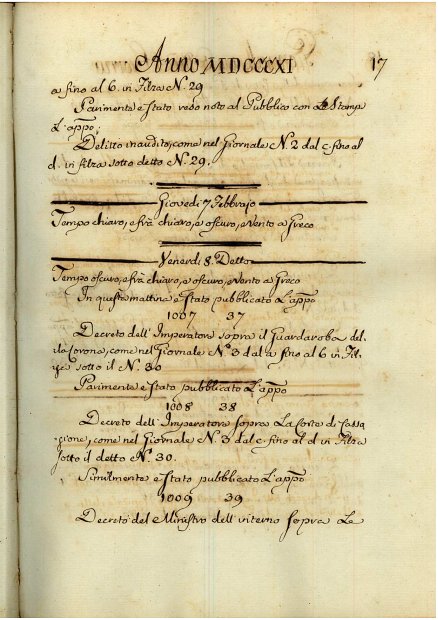 Anno MDCCCXI 17
a fino al 6. in Filza N. 29
Parimente è stato reso noto al Pubblico con le Stampe
L'appo:
Delitto inaudito, come nel Giornale N. 2 dal c. fino al
d. in filza sotto detto N. 29.
Giovedi 7 Febbrajo
Tempo chiaro, e frà chiaro, e oscuro, e vento a Greco
Venerdi 8. Detto
Tempo oscuro, e frà chiaro, e oscuro, e vento a Greco
In questa mattina è stato pubblicato L'appo
1007 37
Decreto dell' Imperatore sopra il Guardaroba del-
la Corona, come nel Giornale N. 3 dal a fino al 6 in Fil-
za sotto il N. 30
Parimente è stato pubblicato L'appo
1008 38
Decreto dell' Imperatore sopra La Corte di Cassa-
zione, come nel Giornale N. 3 dal c. fino al d in Filza
sotto il detto N. 30.
Similmente è stato pubblicato L'appo
1009 39
Decreto del Ministro dell' interno sopra Le